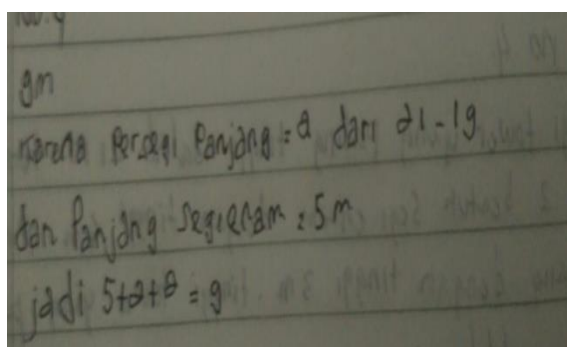 no.4
9m
Karena Persegi Panjang = 2 dari 21-19
dan Panjang segienam = 5 m
jadi 5+2+2 = 9